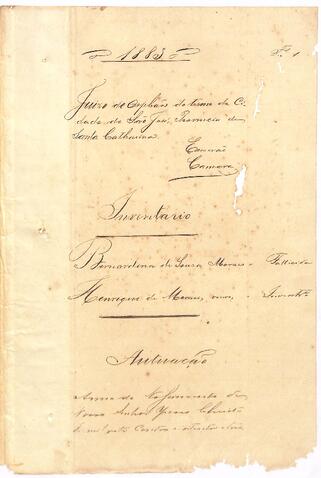 1883 Fl. 1
Juizo de Orphãos do termo da Ci-
dade de São José, Provincia de
Santa Catharina
Escrivão
Camara
Inventario
Bernardina de Souza Moraes - Fallecida
Henrique de Moraes, - Inventte
Autuação
Anno do Nascimento de
Nosso Senhor Jesus Christo
de mil oito centos e oitenta e tres